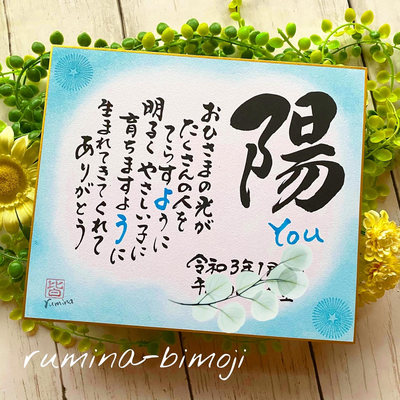 陽
You
おひさまの光が
たくさんの人を
てらすように
明るくやさしい子に
育ちますように
生まれてきてくれて
ありがとう
令和3年1月
午
皆
rumina
rumina-bimoji